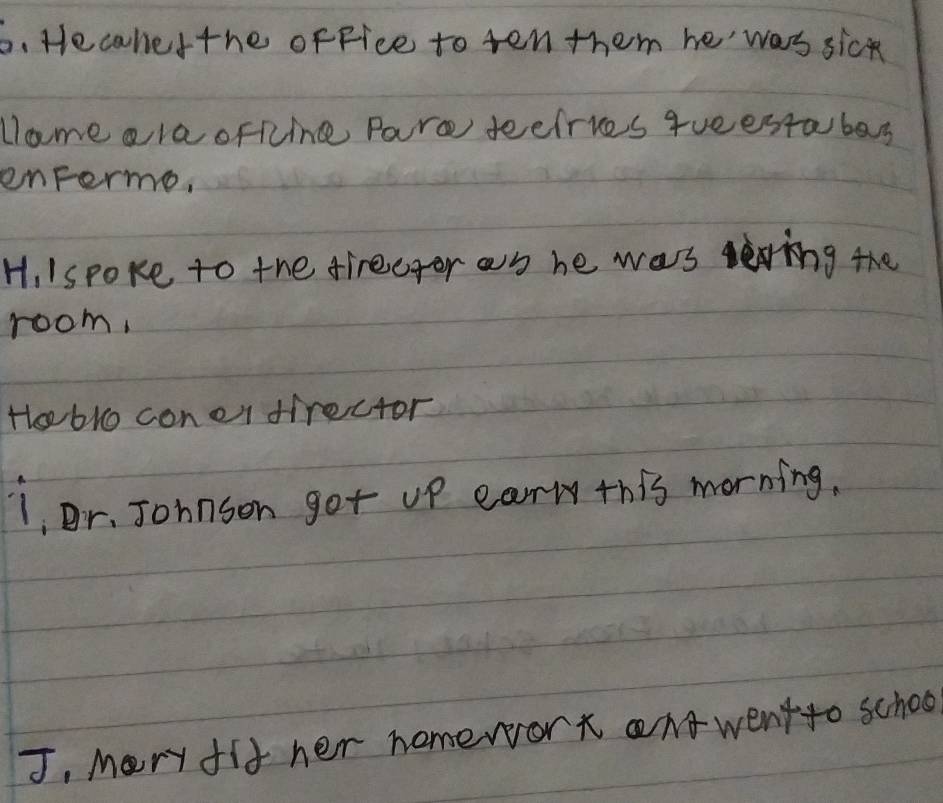 G. He called the office to tell them he was sick
Llame a la oficina para decirles que estabas
enfermo.
H. I spoke to the director as he was leving the
room.
Hablo con el director
i. Dr. Johnson got up early this morning.
J. Mary did her homework and went to school